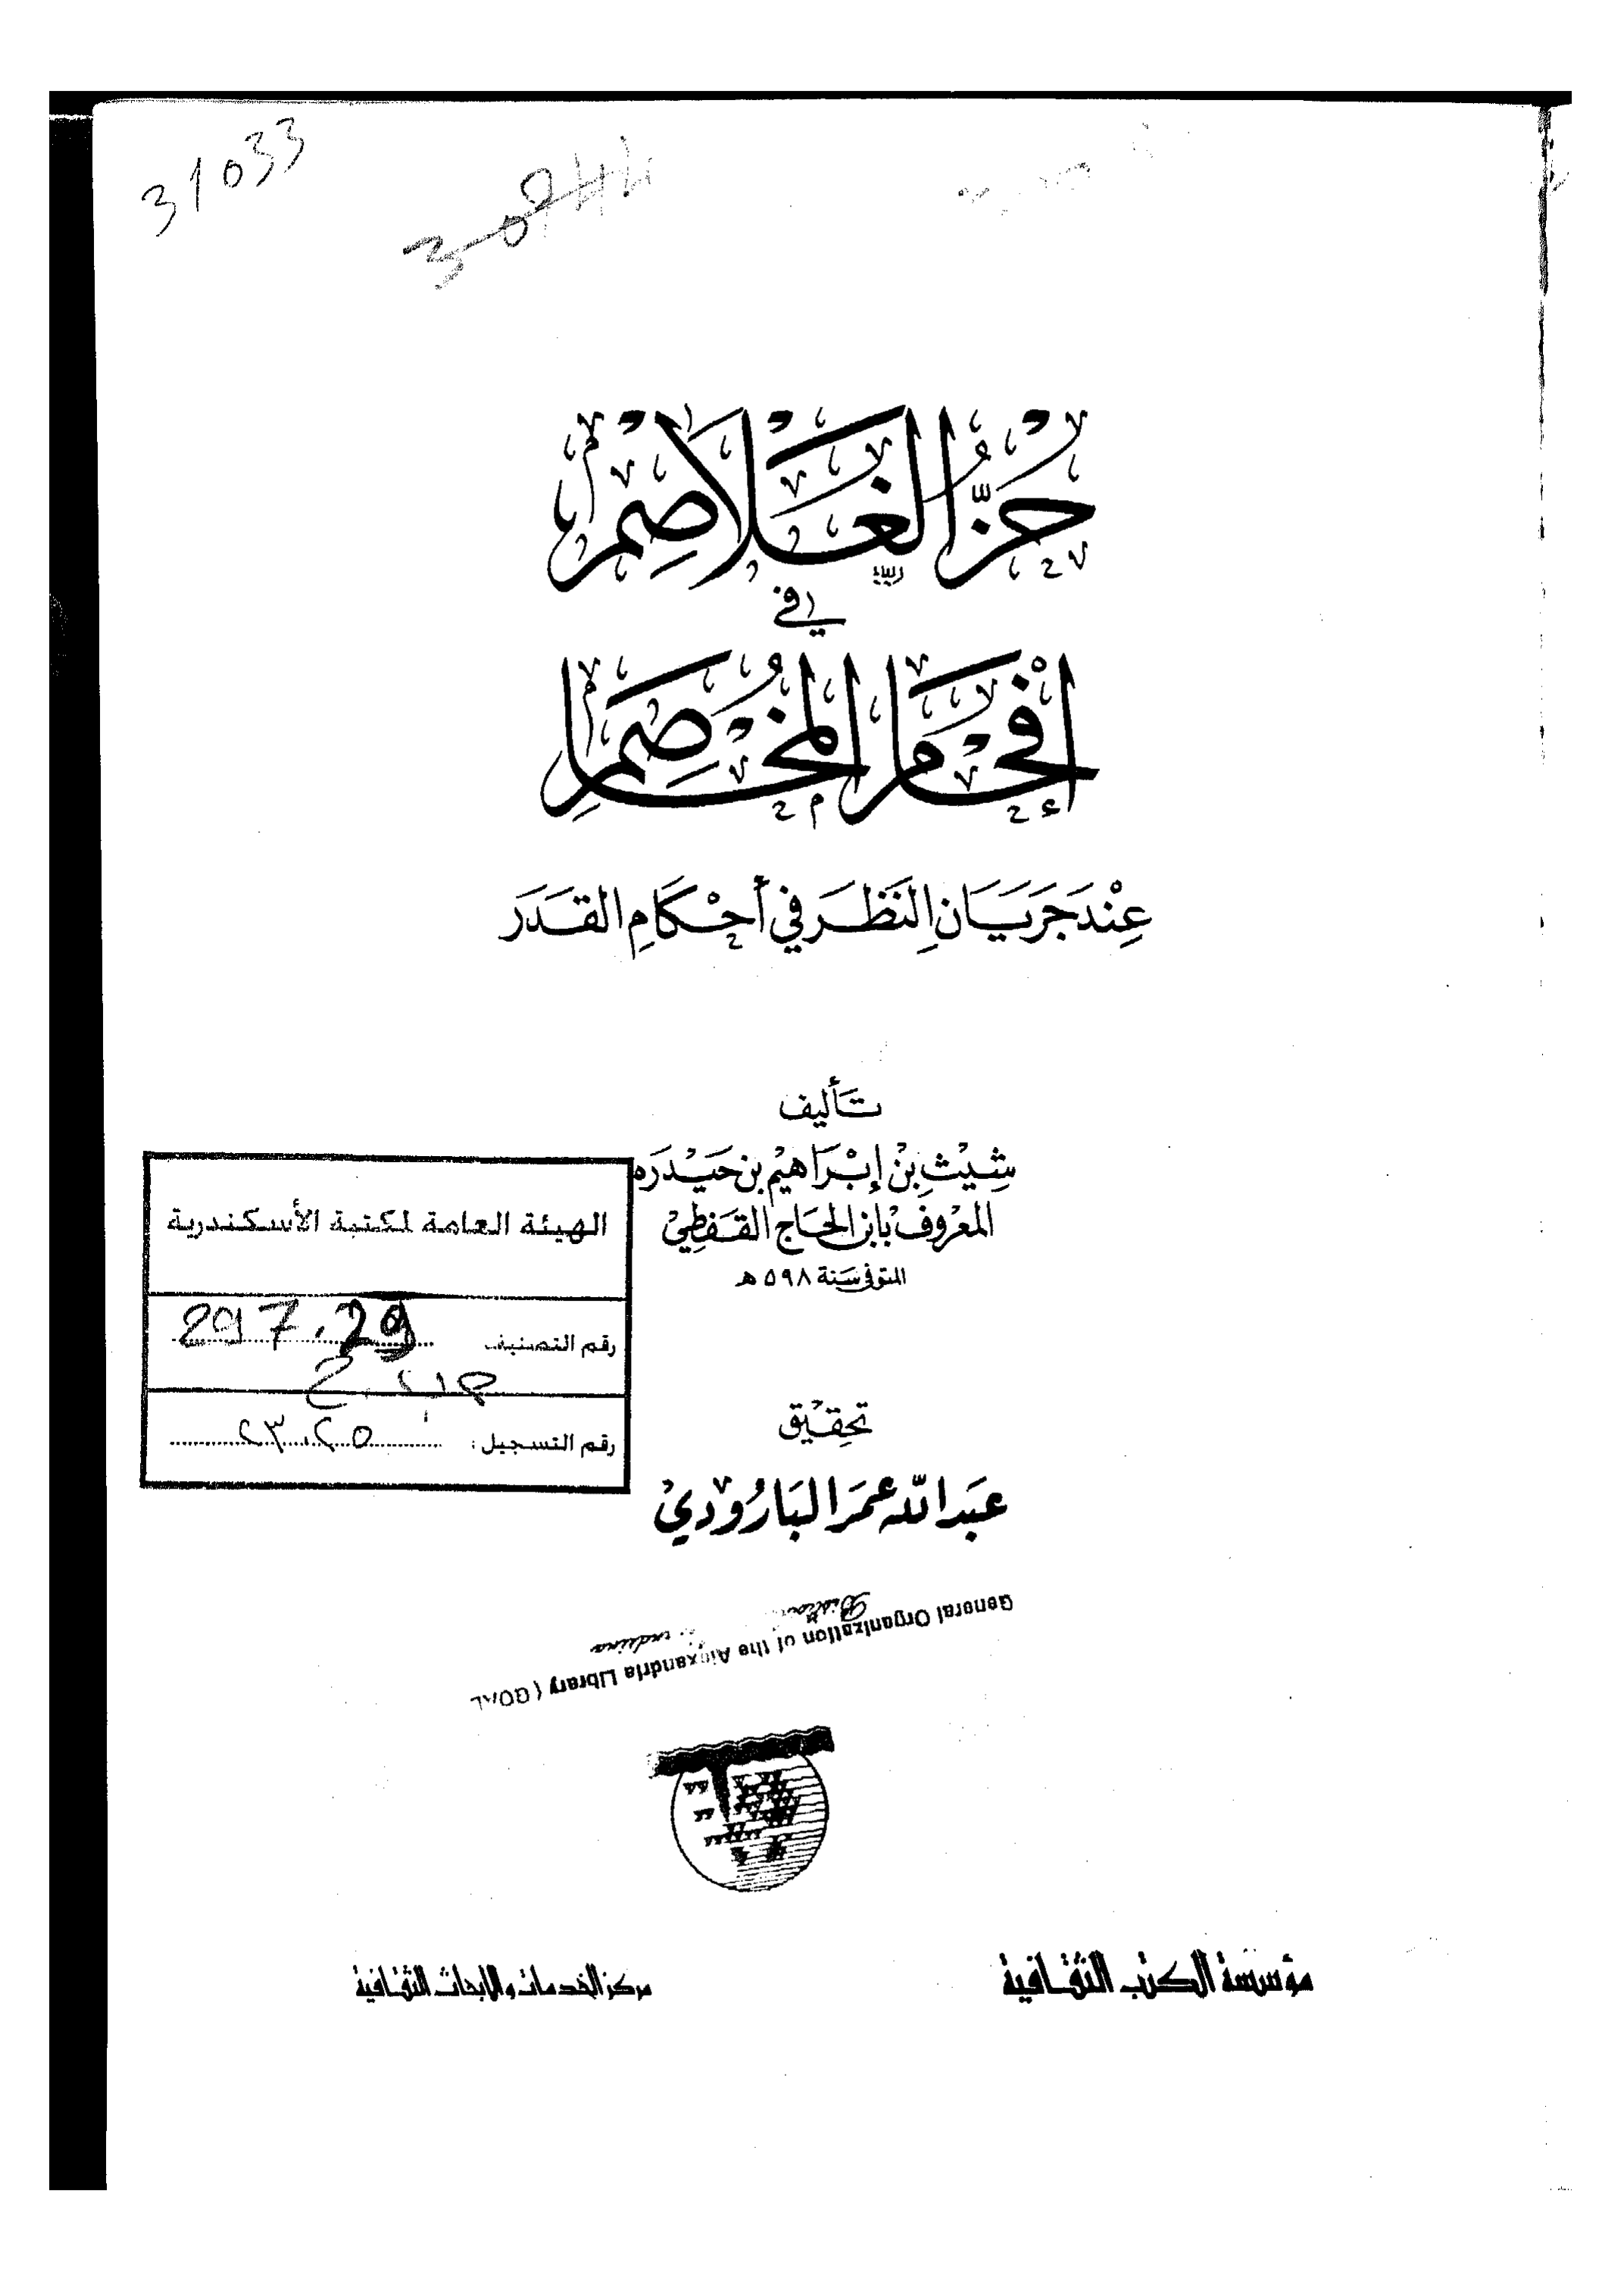 31033
حَزُّ الغَلَاصِمْ
في
إِفْحَامِ المُخَاصِمِ
عِنْدَ جَرَيَانِ النَظَرِ في أَحْكَامِ القَدَرَ
تَأليف
شِيْثِ بِنْ إِبْرَاهيْم بن حَيْدَره
المَعْرُوفْ بابن الحَاج القَفْطِيْ
المتوفى سَنة ٥٩٨ ه
الهيئة العامة لمكتبة الأسكندرية
رقم التصنيف 297.29
رقم التسجيل: ٢٣٠٢٥
تحقِيْق
عَبَد الله عمَر البَارُوْدِيْ
General Organization of the Alexandria Library (GOAL
مؤسسة الكتب الثقافية
مركز الخدمات والابحاث الثقافية